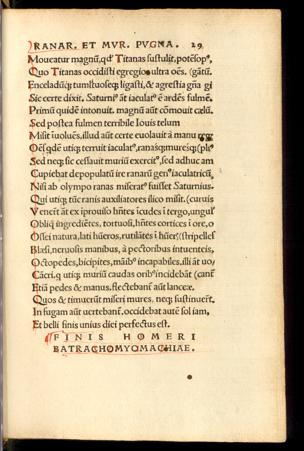 RANAR. ET MVR. PVGNA. 29
Moueatur magnū, qd' Titanas sustulit, potēsop',
Quo Titanas occidisti egregios ultra oēs. (gātū.
Enceladūq; tumstuoseq; ligasti, & agrestia gna gi
Sic certe dixit. Saturni' āt iaculat' ē ardēs fulmē.
Primū quidē intonuit. magnū aūt cōmouit cælū.
Sed postea fulmen terribile Iouis telum
Misit īuoluēs, illud aūt certe euolauit à manu
Oēs qdē utiq; terruit iaculat', ranasq; muresq;
Sed neq; sic cessauit muriū exercit', sed adhuc am
Cupiebat depopulatū ire ranarū gen' iaculatricū,
Nisi ab olympo ranas miserat' fuisset Saturnius.
Qui utiq; tūc ranis auxiliatores ilico misit. (curuis
Venerūt āt ex iprouiso hñtes īcudes ī tergo, ungul'
Obliq; ingrediētes, tortuosi, hñtes cortices ī ore, o
Ossei natura, lati hūeros, rutilātes ī hūer' (stripelles
Blæsi, neruosis manibus, à pectoribus intuenteis,
Octopedes, bicipites, māib' incapabiles. illi āt uo
Cācri. q utiq; muriū caudas orib' incidebāt (canī
Etiā pedes & manus. flectebant aūt lanceæ.
Quos & timuerūt miseri mures. neq; sustinuerūt.
In fugam aūt uertebant. occidebat autē sol iam,
Et belli finis unius diei perfectus est.
FINIS HOMERI
BATRACHOMYOMACHIAE.